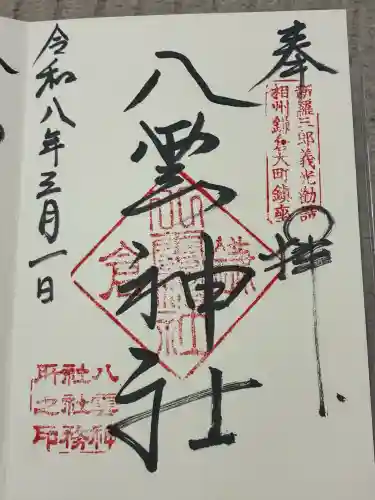 奉拝
新羅三郎義光勧請
相州鎌倉大町鎮座
八雲神社
鎌倉
八雲神社
令和八年三月一日
八雲神
社社務
所之印